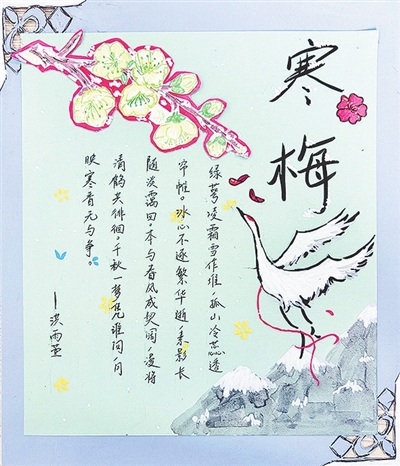 寒梅
绿萼凌霜雪作堆，孤山冷蕊透
帘帷。冰心不逐繁华趋，素影长
随淡霭回。本与春风成契阔，漫将
清鹤共徘徊。千秋一梦凭谁问，问
映寒香无与争。
—洪雨萱